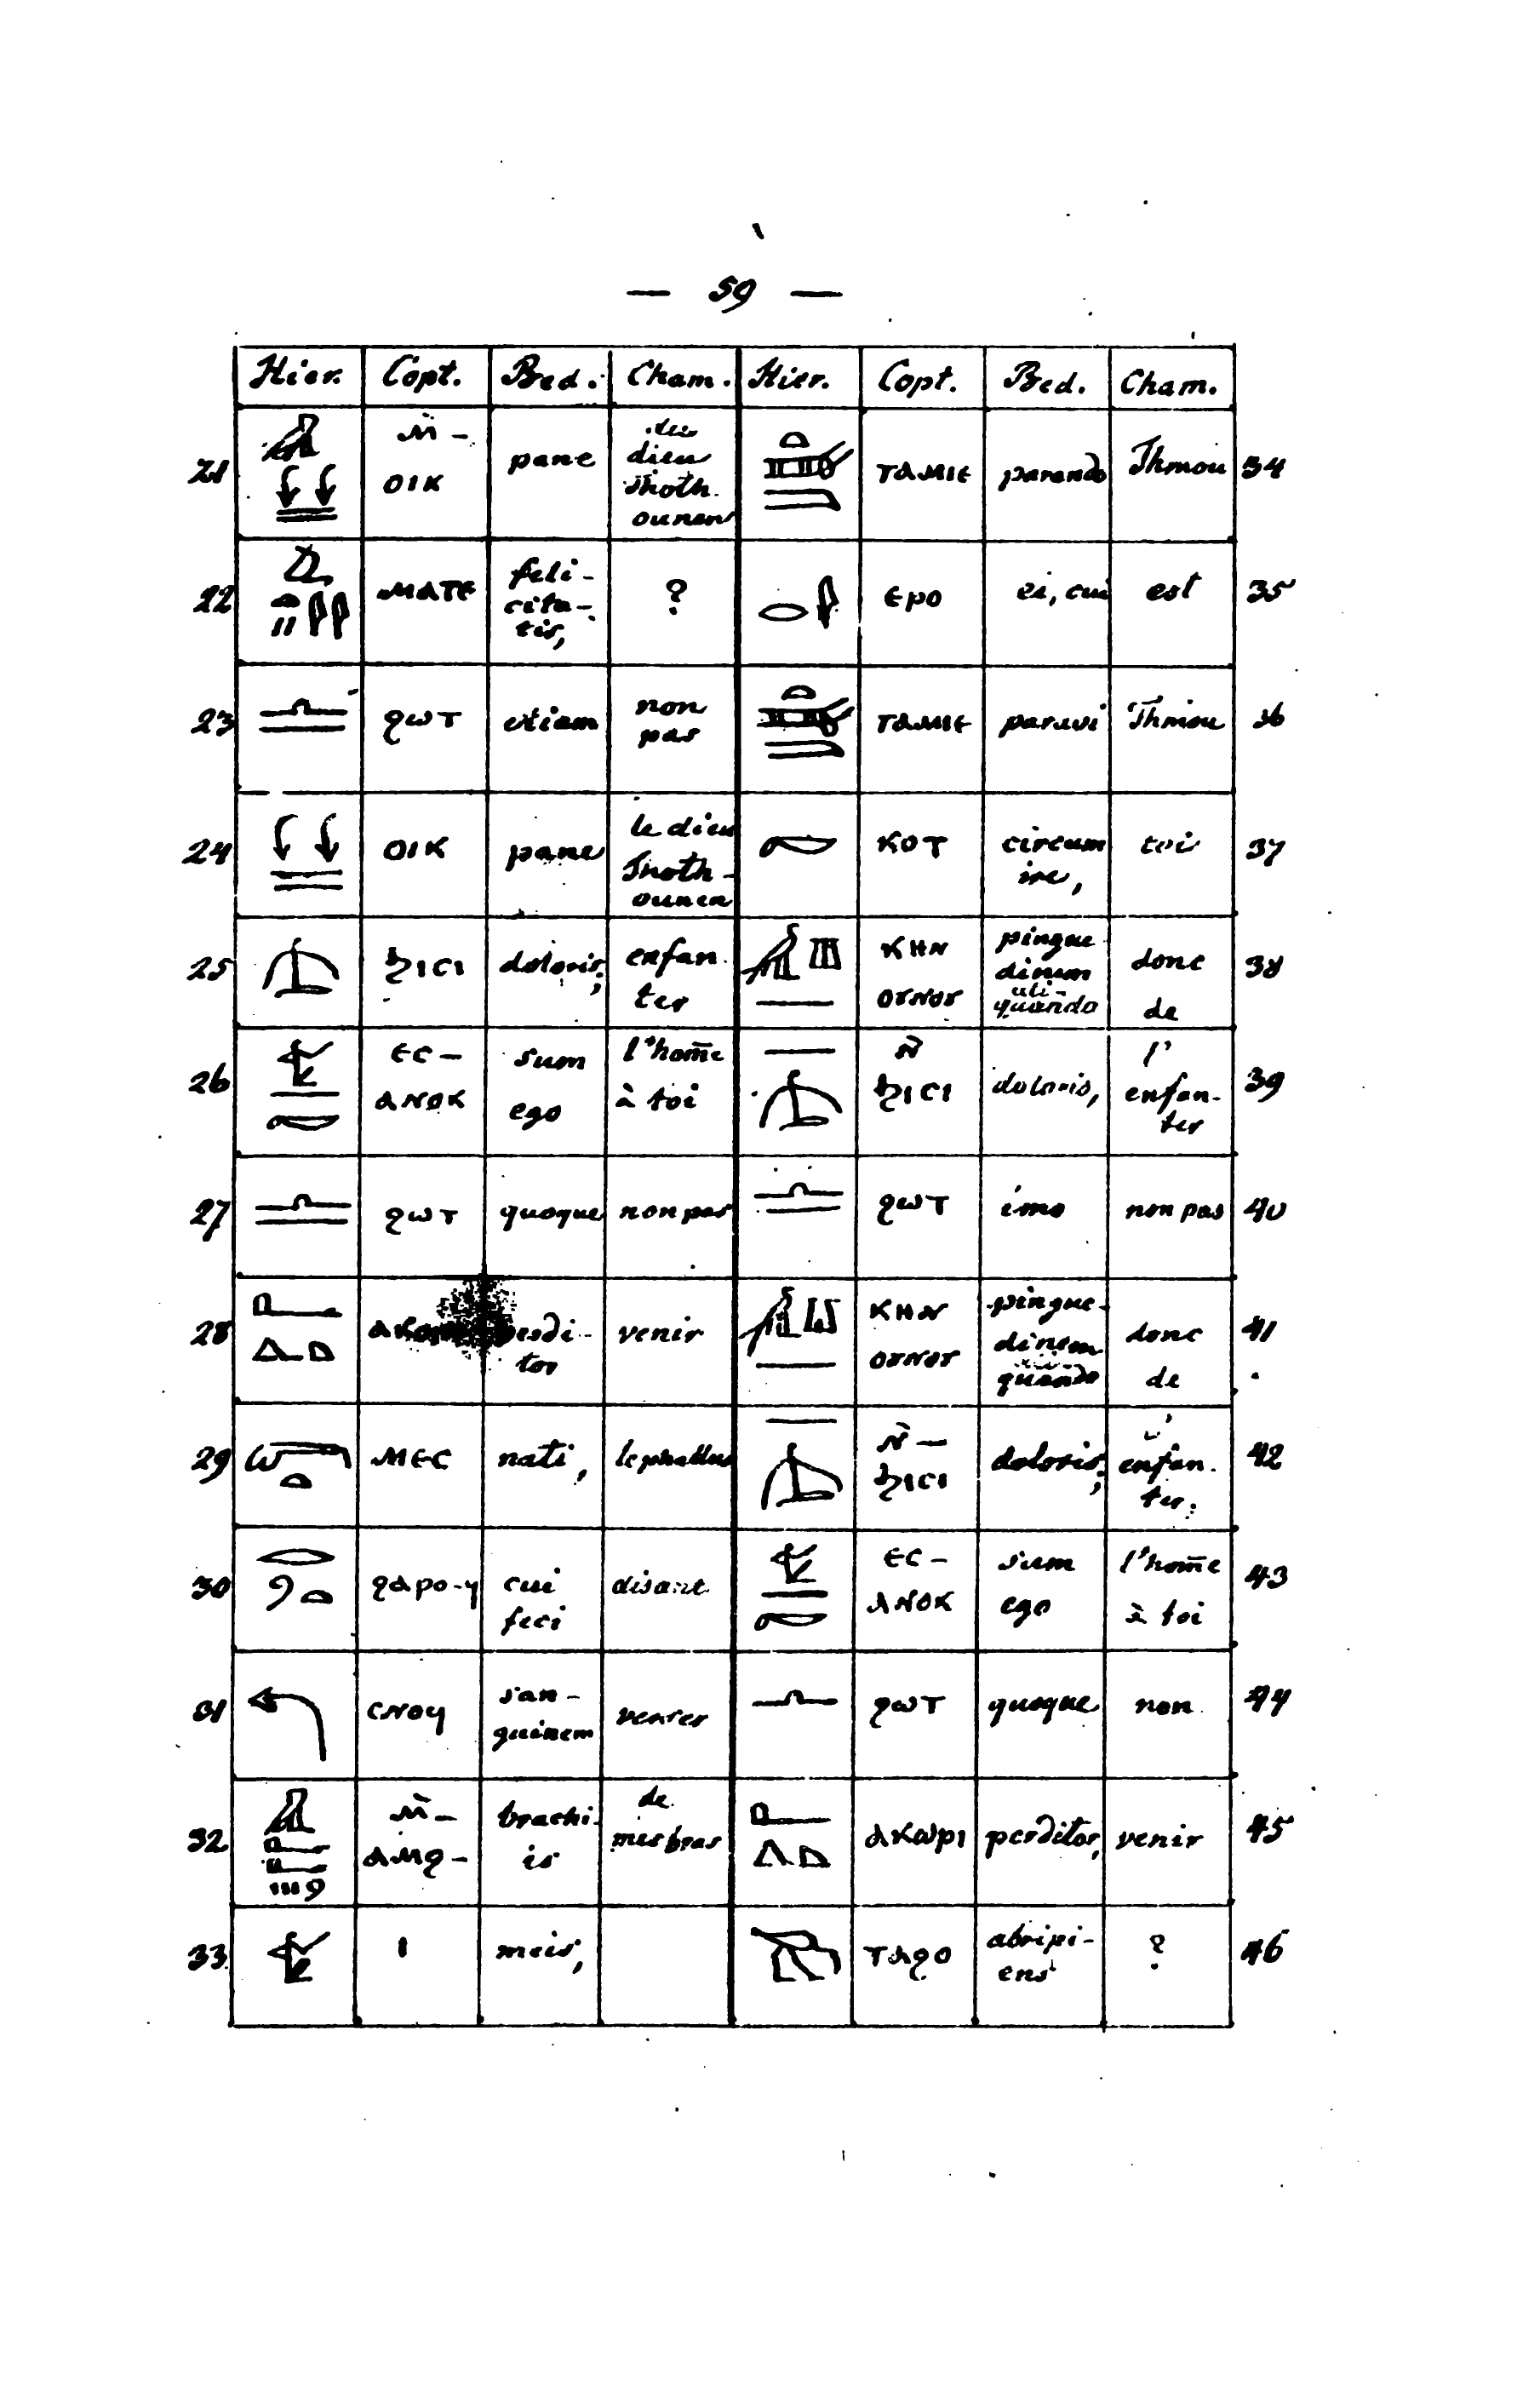 — 59 —
Hier. Copt. Bed. Cham. Hier. Copt. Bed. Cham.
21 ⲙ̀-ⲟⲓⲕ pane du dieu Thoth ounen ⲧⲁⲙⲓⲉ parando Thmou 34
22 ⲙⲁⲧⲉ felicitatis, ? ⲉⲣⲟ ei, cui est 35
23 ϩⲱⲧ etiam non pas ⲧⲁⲙⲓⲉ paravi Thmou 36
24 ⲟⲓⲕ pane le dieu Thoth-ounen ⲕⲟⲧ circumire, toi 37
25 ϧⲓⲥⲓ doloris; enfanter ⲕⲏⲛ ⲟⲩⲛⲟⲩ pinguedinum ali-quando donc de 38
26 ⲉⲥ-ⲁⲛⲟⲕ sum ego l'hom̄e à toi ⲛ̀ ϧⲓⲥⲓ doloris, l'enfanter 39
27 ϩⲱⲧ quoque non pas ϩⲱⲧ imo non pas 40
28 venir ⲕⲏⲛ ⲟⲩⲛⲟⲩ pingue-dinem quando donc de 41
29 ⲙⲉⲥ nati, le phallus ⲛ̀-ϧⲓⲥⲓ doloris; enfanter. 42
30 ϩⲁⲣⲟ-ϥ cui feci disant ⲉⲥ-ⲁⲛⲟⲕ sum ego l'hom̄e à toi 43
31 ⲥⲛⲟϥ san-guinem verser ϩⲱⲧ quoque non 44
32 ⲙ̀-ⲁⲙϩ- brachi-is de mes bras ⲁⲕⲱⲣⲓ perditor, venir 45
33 ⲓ meis, ⲧⲁϩⲟ abripi-ens ? 46